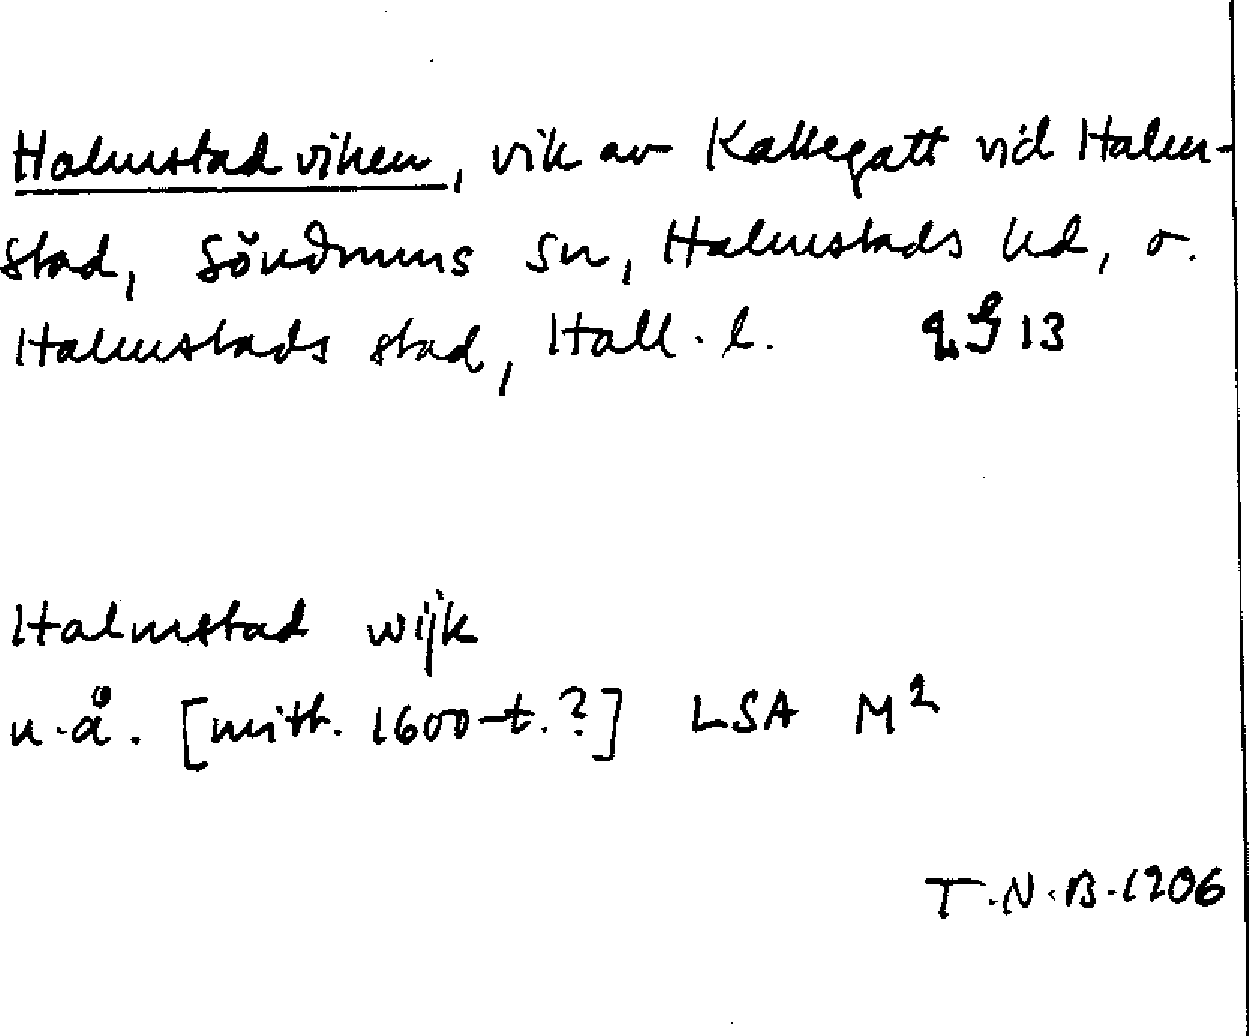 Halmstadviken, vik av Kattegatt vid Halm-
stad, Söndrums sn, Halmstads hd, o.
Halmstads stad, Hall. l. 13
Halmstad wijk
u.å. [mitt. 1600-t.?] LSA M2
T.N.B. 1206